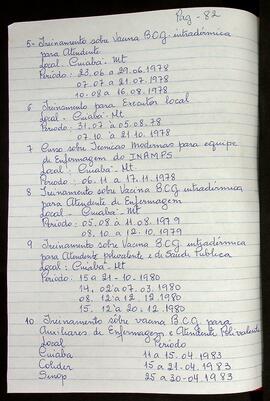 Pag - 82
5- Treinamento sobre Vacina B.C.G. intradérmica
para Atendente
Local: Cuiabá - Mt
Período: 23.06 a 29.06.1978
07.07 a 21.07.1978
10.08 a 16.08.1978
6 Treinamento para Executor local
Local - Cuiabá - Mt
Período: 31.07 a 05.08.78
07.10 a 21.10.1978
7 Curso sobre Técnicas Modernas para equipe
de Enfermagem do INAMPS
Local: Cuiabá - Mt
Período: 06.11 a 17.11.1978
8 Treinamento sobre Vacina B.C.G intradérmica
para Atendente de Enfermagem
Local - Cuiabá - Mt
Período: 05.08 a 11.08.1979
08.10 a 12.10.1979
9 Treinamento sobre Vacina B.C.G intradérmica
para Atendente polivalente e de Saúde Pública
Local: Cuiabá - Mt
Período: 15 a 21-10-1980
14, 02 a 07.03.1980
08. 12 a 12.12.1980
15. 12 a 20.12.1980
10. Treinamento sobre vacina B.C.G. para
Auxiliares de Enfermagem e Atendente Polivalente
Local Período
Cuiabá 11 a 15.04.1983
Colider 15 a 21.04.1983
Sinop 25 a 30.04.1983